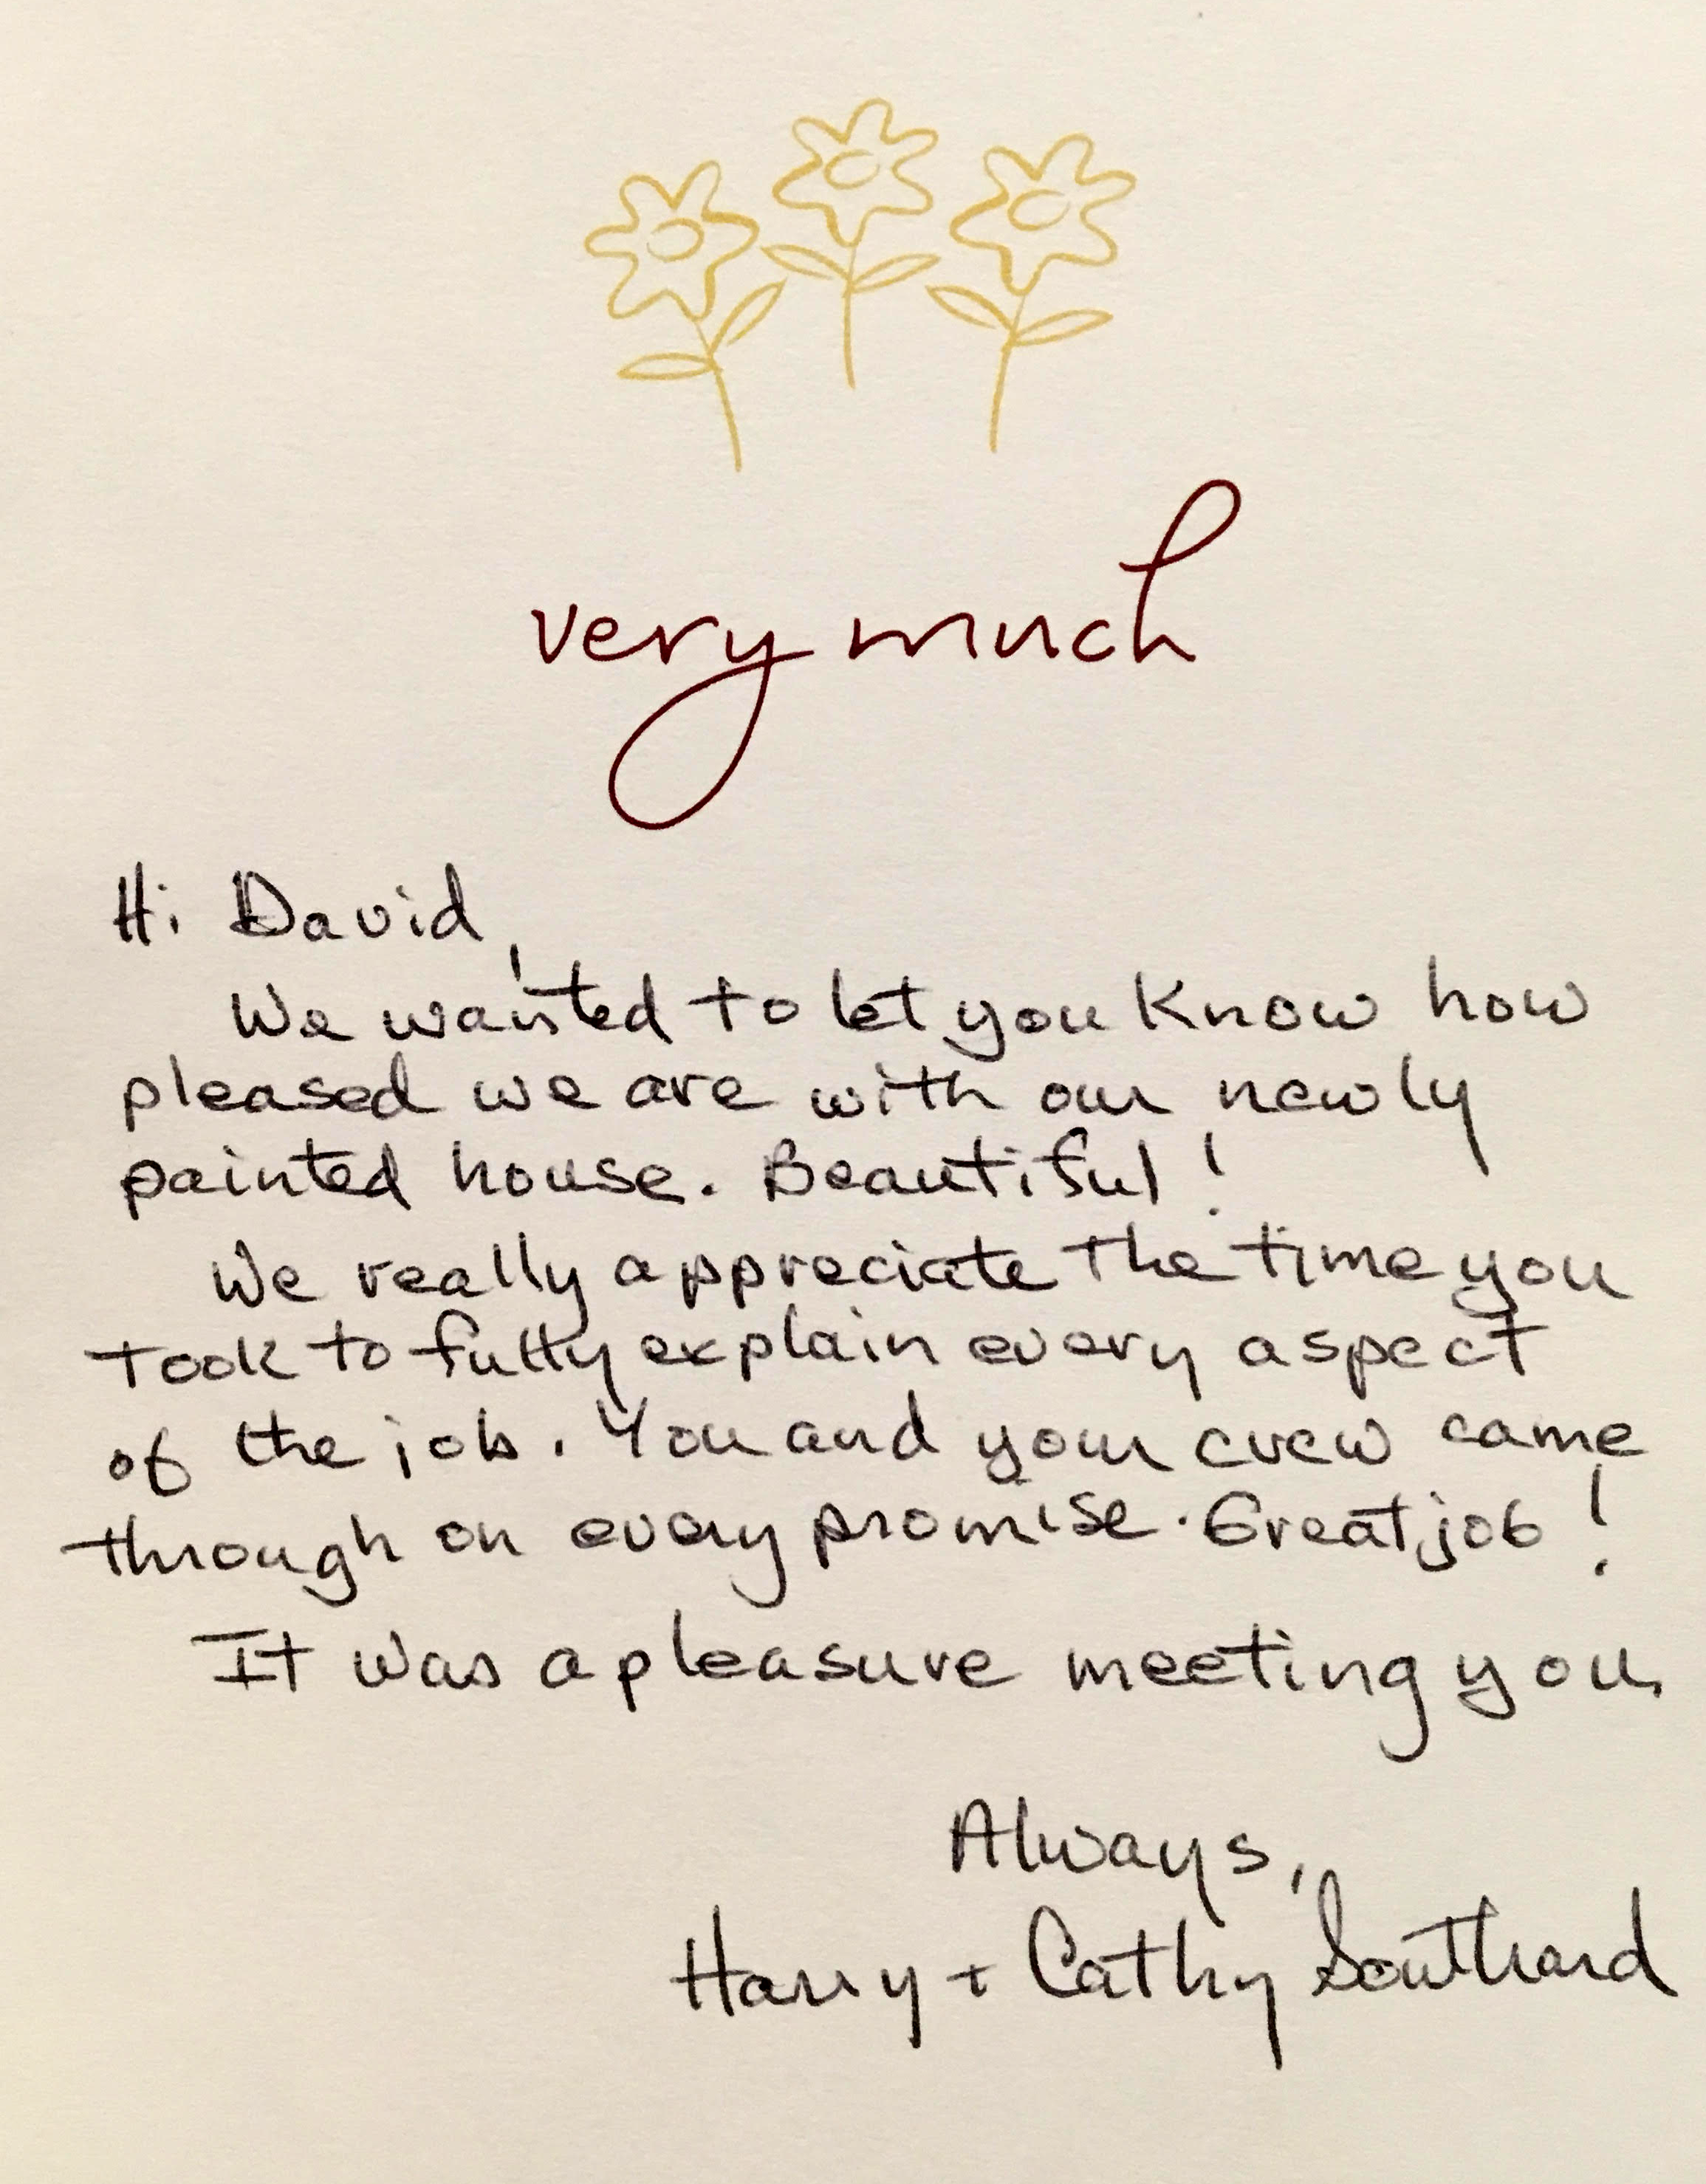 very much
Hi David,
We wanted to let you know how
pleased we are with our newly
painted house. Beautiful!
We really appreciate the time you
took to fully explain every aspect
of the job. You and your crew came
through on every promise. Great job!
It was a pleasure meeting you.
Always,
Harry + Cathy Southard